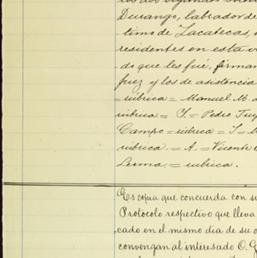 Durango, labrador de
timo de Zacatecas,
residentes en esta v
do que les fué, firman
juez y los de asistencia
rúbrica = Manuel M. a
rúbrica = J. = Pedro
Campo = rúbrica = J.
rúbrica. = A. = Vicente
Lerma. = rúbrica.
Es copia que concuerda con su
Protocolo respectivo que lleva
cado en el mismo dia de su o
convengan al interesado O. G